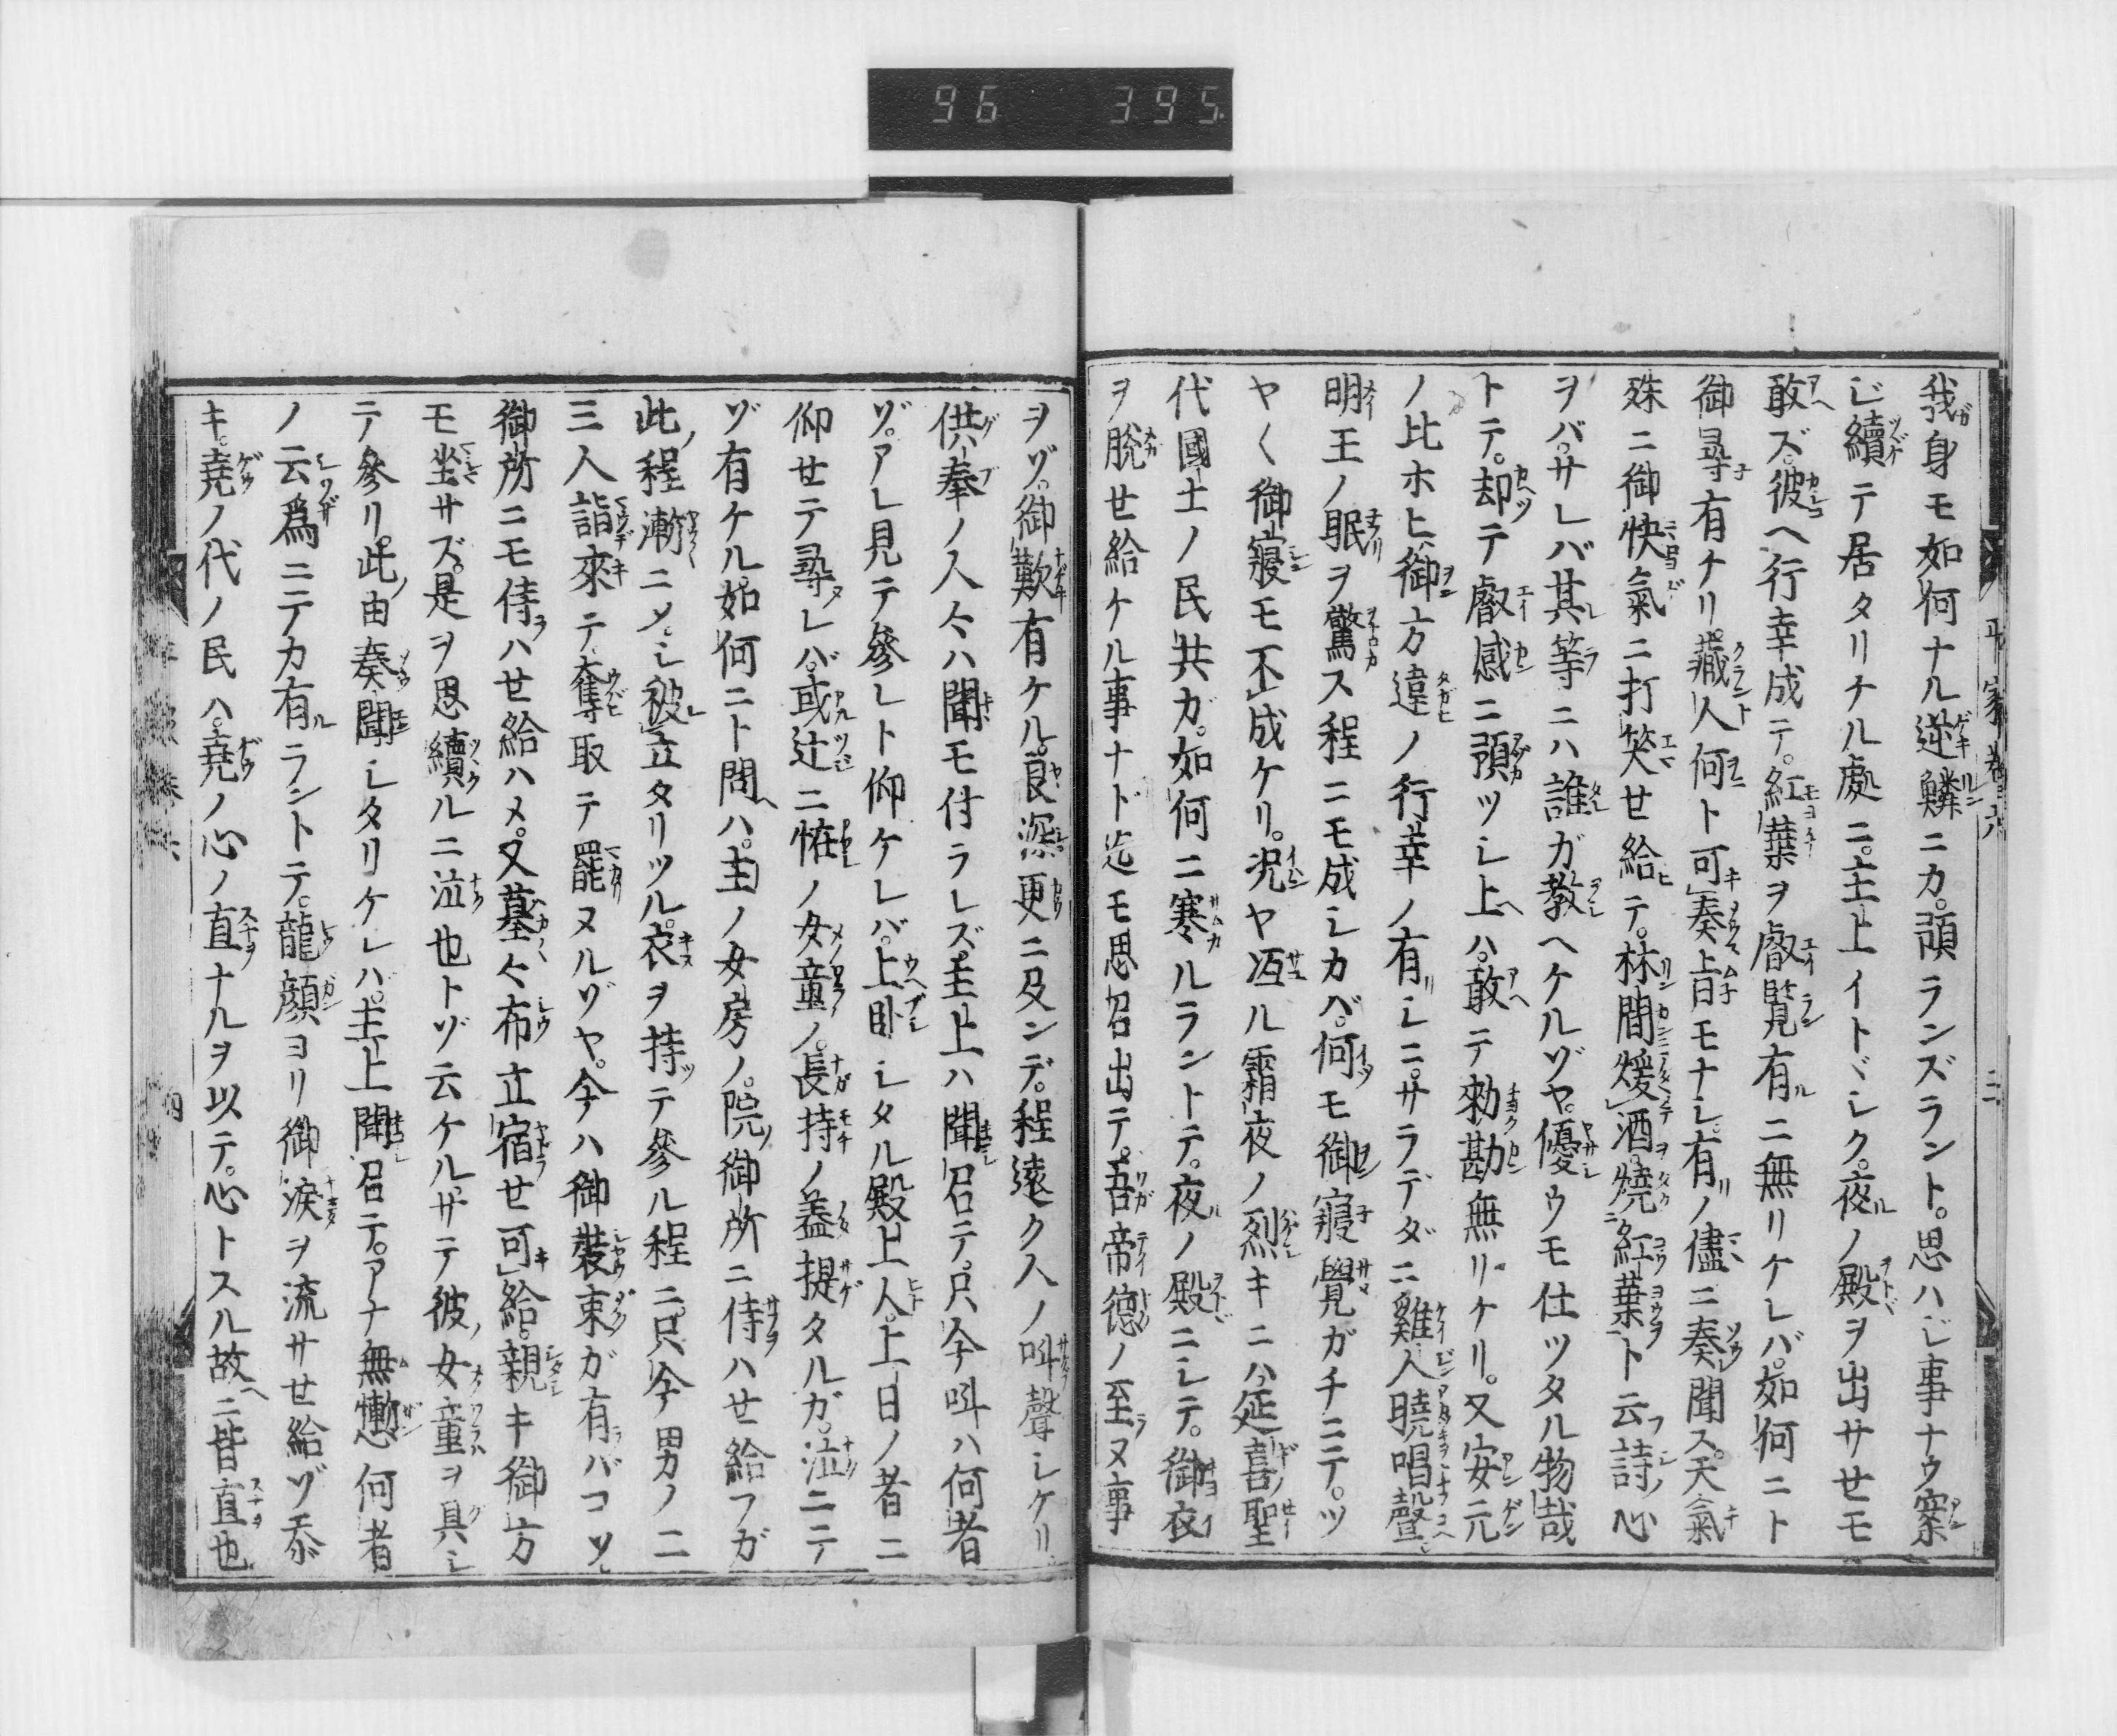 96 395
平家巻六
我身モ如何ナル逆鱗ニカ。預ランズラント。思ハジ事ナウ案
ジ續テ居タリナル處ニ。主上イトヾシク。夜ノ殿ヲ出サせモ
敢ズ。彼へ行幸成テ。紅葉ヲ叡覧有ニ無リケレバ。如何ニト
御尋有ナリ。藏人何ト可奏旨モナシ。有ノ儘ニ奏聞ス。天氣
殊ニ御快氣ニ打笑せ給テ。林間煖酒燒紅葉ト云詩ノ心
ヲバ。サレバ其等ニハ誰ガ教ヘケルゾヤ。優ウモ仕ツタル物哉
トテ。却テ叡感ニ預ツシ上ハ。敢テ勅勘無リケリ。又安元
ノ比ホヒ。御方違ノ行幸ノ有シニ。サラデダニ雞人曉唱聲
明王ノ眠ヲ驚ス程ニモ成シカバ。何モ御寢覺ガチニテ。ツ
ヤ〱御寢モ不成ケリ。况ヤ冱ル霜夜ノ烈キニハ。延喜聖
代國土ノ民共ガ。如何ニ寒ルラントテ。夜ノ殿ニシテ。御衣
ヲ脱せ給ケル事ナド迄モ思召出テ。吾帝德ノ至ヌ事
ヲゾ。御歎有ケル。良深更ニ及ンデ。程遠ク人ノ叫聲シケリ。
供奉ノ人々ハ聞モ付ラレズ。主上ハ聞召テ。只今叫ハ何者
ゾ。アレ見テ參レト仰ケレバ。上卧シタル殿上人。上日ノ者ニ
仰せテ尋レバ。或辻ニ怪ノ女童ノ。長持ノ蓋提タルガ。泣ニテ
ゾ有ケル。如何ニト問ハ。主ノ女房ノ。院御所ニ侍ハせ給フガ
此程漸ニメシ被立タリツル。衣ヲ持テ參ル程ニ。只今男ノ二
三人詣來テ。奪取テ罷ヌルゾヤ。今ハ御裝束ガ有バコソ
御所ニモ侍ハせ給ハメ。又墓々布立宿せ可給。親キ御方
モ坐サズ。是ヲ思續ルニ泣也トゾ云ケル。サテ彼女童ヲ具シ
テ參リ。此由奏聞シタリケレバ。主上聞召テ。アナ無慚。何者
ノ云爲ニテカ有ラントテ。龍顔ヨリ御淚ヲ流サせ給ゾ忝
キ。堯ノ代ノ民ハ。堯ノ心ノ直ナルヲ以テ。心トスル故ニ皆直也